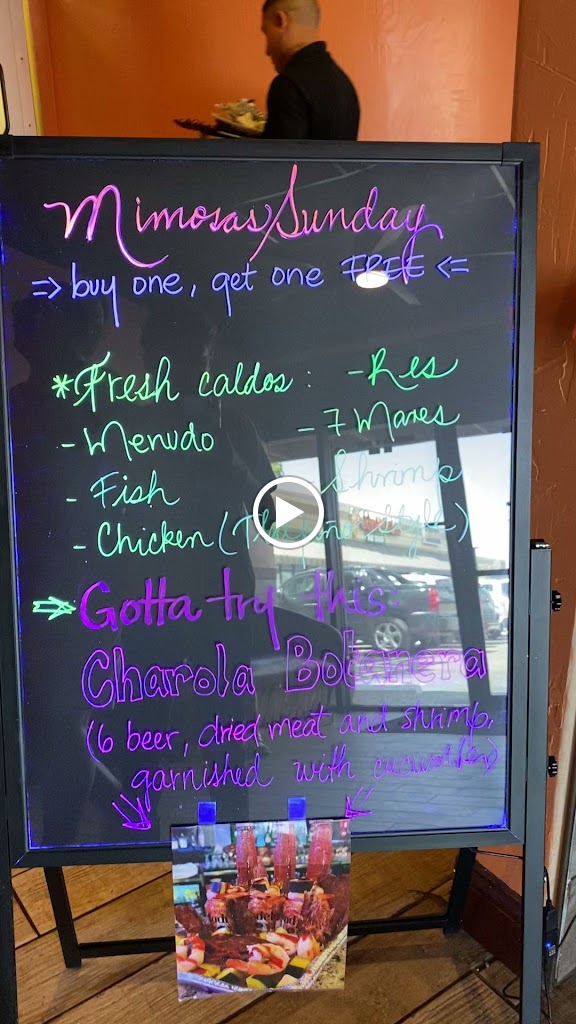 Mimosas Sunday
=> buy one, get one FREE <=
*Fresh caldos: -Res
-Menudo -7 Mares
-Fish Shrimp
-Chicken (Style)
=> Gotta try this:
Charola Botanera
(6 beer, dried meat and shrimp,
garnished with